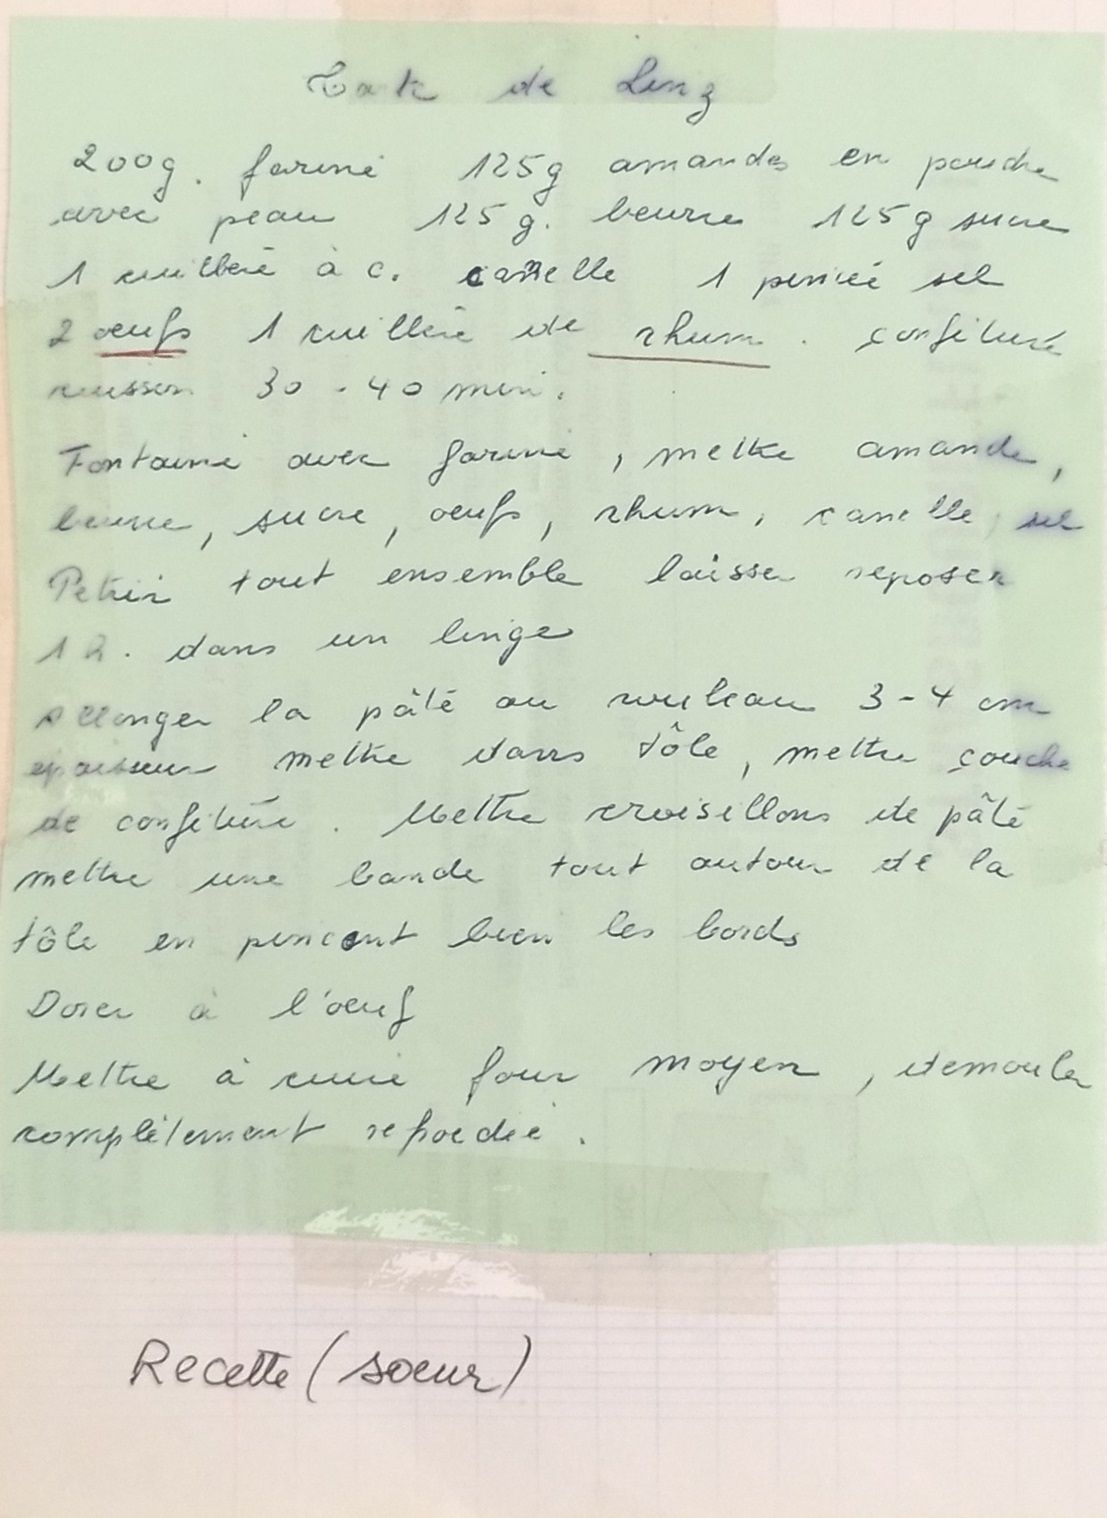 Tarte de Linz
200g. farine 125g amandes en poudre
avec peau 125g. beurre 125g sucre
1 cuillère à c. canelle 1 pincée sel
2 oeufs 1 cuillère de rhum. confiture
cuisson 30-40 min.
Fontaine avec farine, mettre amande,
beurre, sucre, oeufs, rhum, canelle, sel
Petrir tout ensemble laisser reposer
1 h. dans un linge
Allonger la pâte au rouleau 3-4 cm
epaisseur mettre dans tôle, mettre couche
de confiture. Mettre croisillons de pâte
mettre une bande tout autour de la
tôle en pincent bien les bords
Dorer à l'oeuf
Mettre à cuire four moyen, demouler
complètement refroedie.
Recette (soeur)